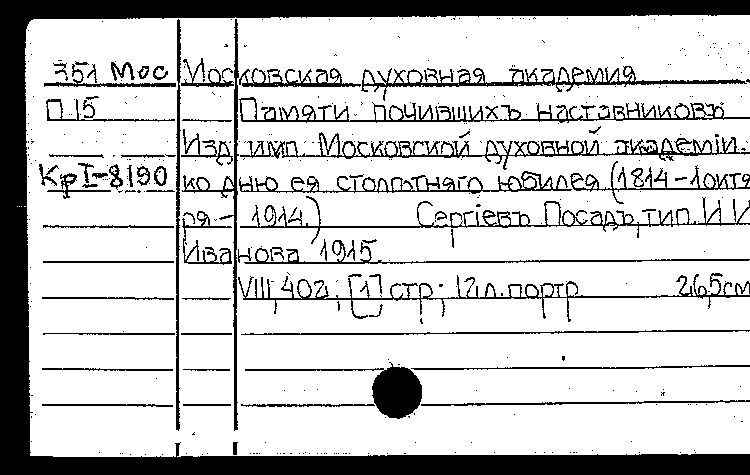 351 Мос Московская духовная академия
П 15 Памяти почившихъ наставниковъ
Изд. имп. Московской духовной академiи.
КрI-8190 ко дню ея столѣтняго юбилея (1814 – 1 октя
ря – 1914.) Сергiевъ Посадъ, тип. И И
Иванова 1915.
VIII, 402; [1] стр; 12 л. портр. 26,5см